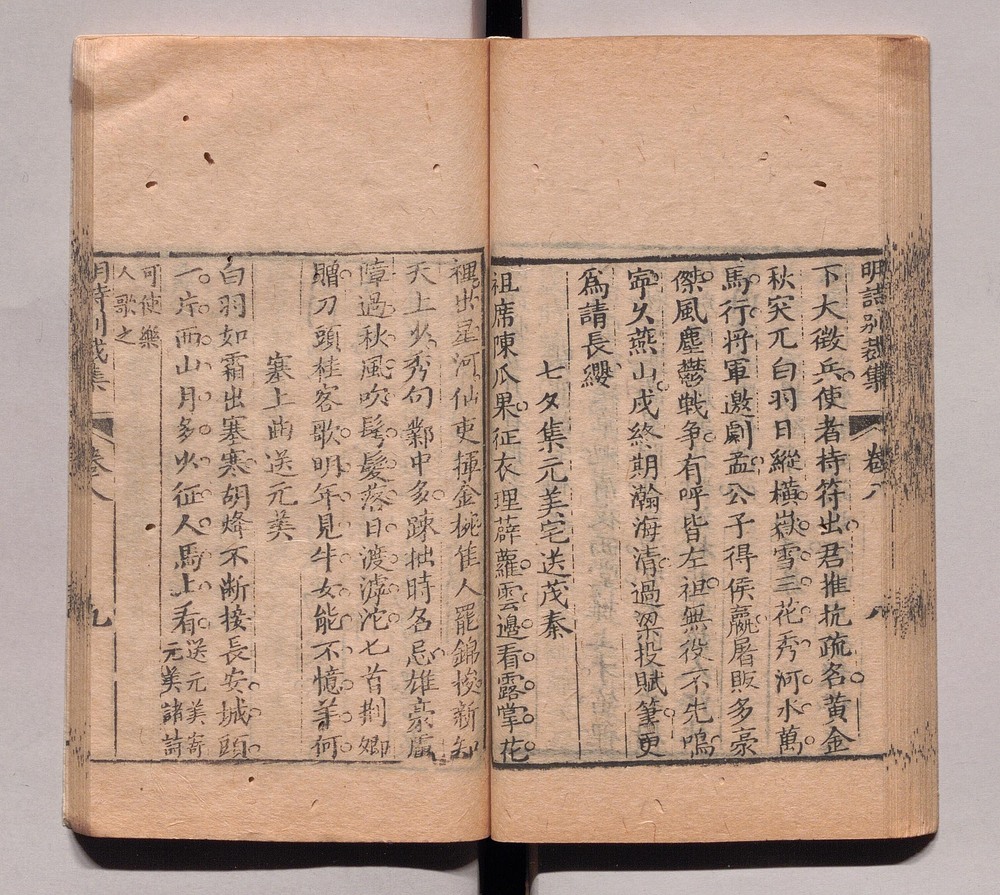 明詩別裁集 卷八 八
下大徵兵使者持符出君推抗疏名黄金
秋突兀白羽日縱橫嶽雪三花秀河水萬
馬行將軍邀劇孟公子得侯嬴屠販多豪
傑風塵鬱戰爭有呼皆左袒無役不先鳴
寧久燕山戍終期瀚海清過梁投賦筆更
爲請長纓
七夕集元美宅送茂秦
祖席陳瓜果征衣理薜蘿雲邊看露掌花
裡出星河仙吏揮金椀佳人罷錦梭新知
天上少秀句鄴中多疎拙時名忌雄豪
障過秋風吹髩髮落日渡滹沱匕首荆卿
贈刀頭桂客歌明年見牛女能不憶羊何
塞上曲送元美
白羽如霜出塞寒胡烽不斷接長安城頭
一片西山月多少征人馬上看送元美寄元美諸詩
可使樂人歌之
明詩別裁集 卷八 九